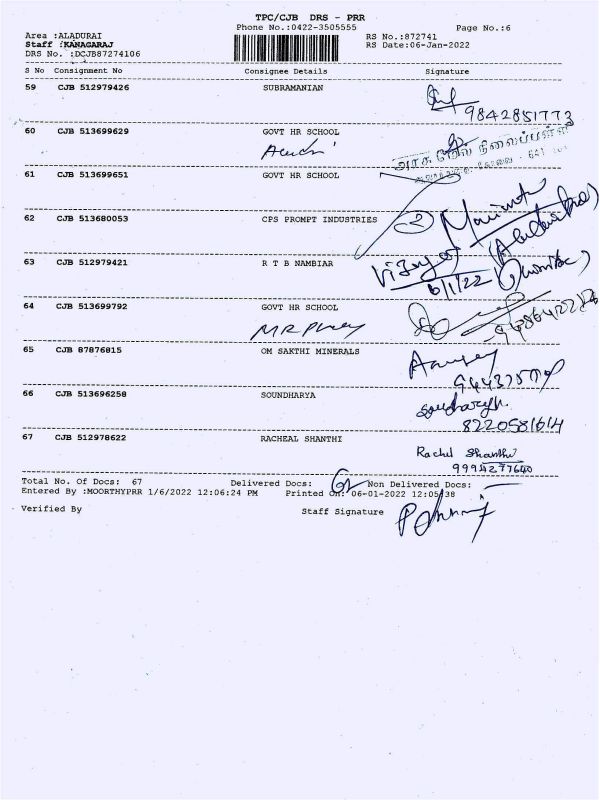 TPC/CJB DRS - PRR
Phone No.:0422-3505555 Page No.:6
Area :ALADURAI RS No.:872741
Staff :KANAGARAJ RS Date:06-Jan-2022
DRS No. :DCJB87274106
S No Consignment No Consignee Details Signature
59 CJB 512979426 SUBRAMANIAN
9842851773
60 CJB 513699629 GOVT HR SCHOOL
61 CJB 513699651 GOVT HR SCHOOL
62 CJB 513680053 CPS PROMPT INDUSTRIES
63 CJB 512979421 R T B NAMBIAR
6/1/22
64 CJB 513699792 GOVT HR SCHOOL
65 CJB 87876815 OM SAKTHI MINERALS
66 CJB 513696258 SOUNDHARYA
Soudharya.
8220581614
67 CJB 512978622 RACHEAL SHANTHI
Rachel Shanthi
9994277640
Total No. Of Docs: 67 Delivered Docs: Non Delivered Docs:
Entered By :MOORTHYPRR 1/6/2022 12:06:24 PM Printed On: 06-01-2022 12:05:38
Verified By Staff Signature